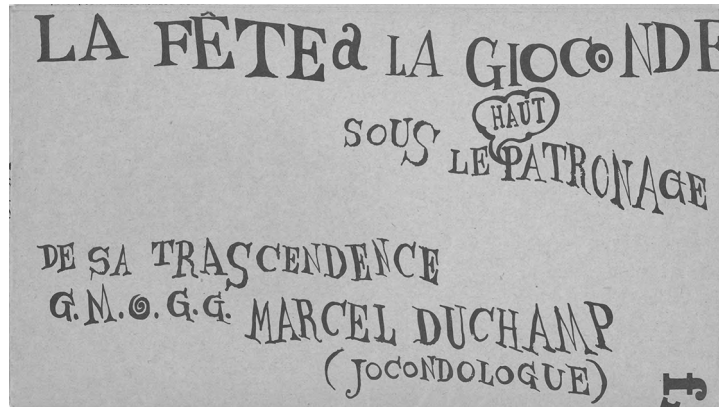 LA FÊTE à LA GIOCONDE
SOUS LE HAUT PATRONAGE
DE SA TRASCENDENCE
G.M.O.G.G. MARCEL DUCHAMP
(JOCONDOLOGUE)
f